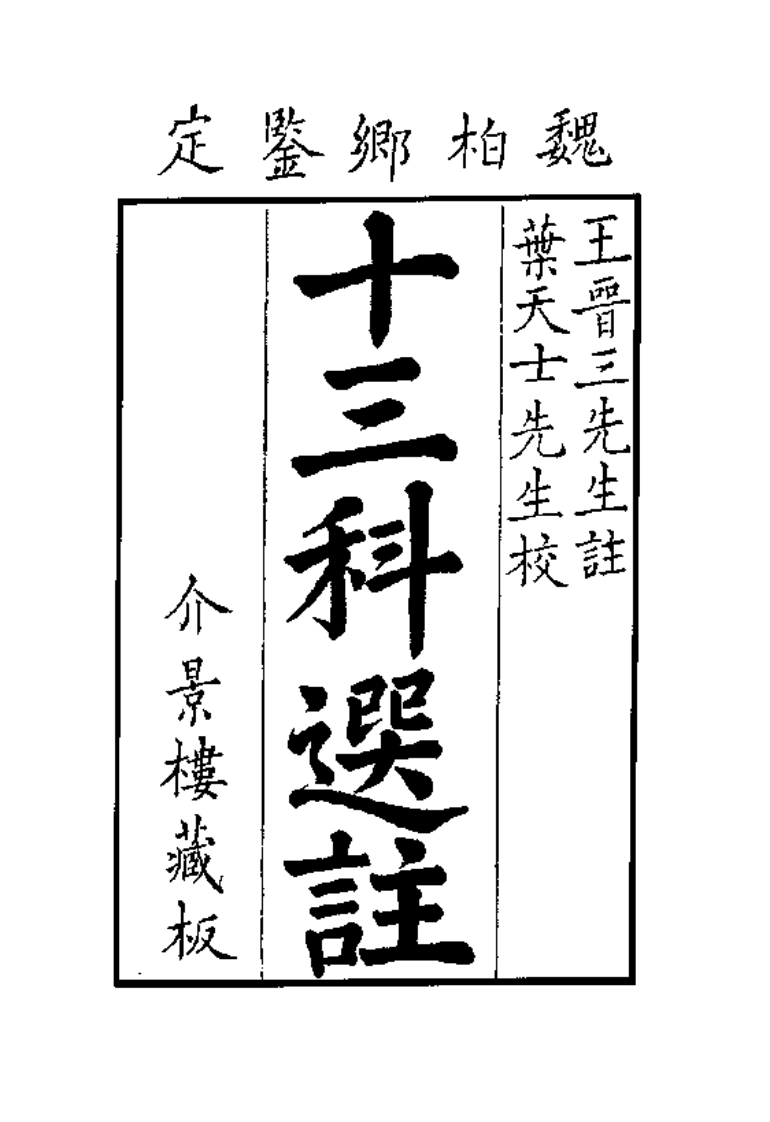 魏柏鄉鑒定
王晉三先生註
葉天士先生校
十三科選註
介景樓藏板